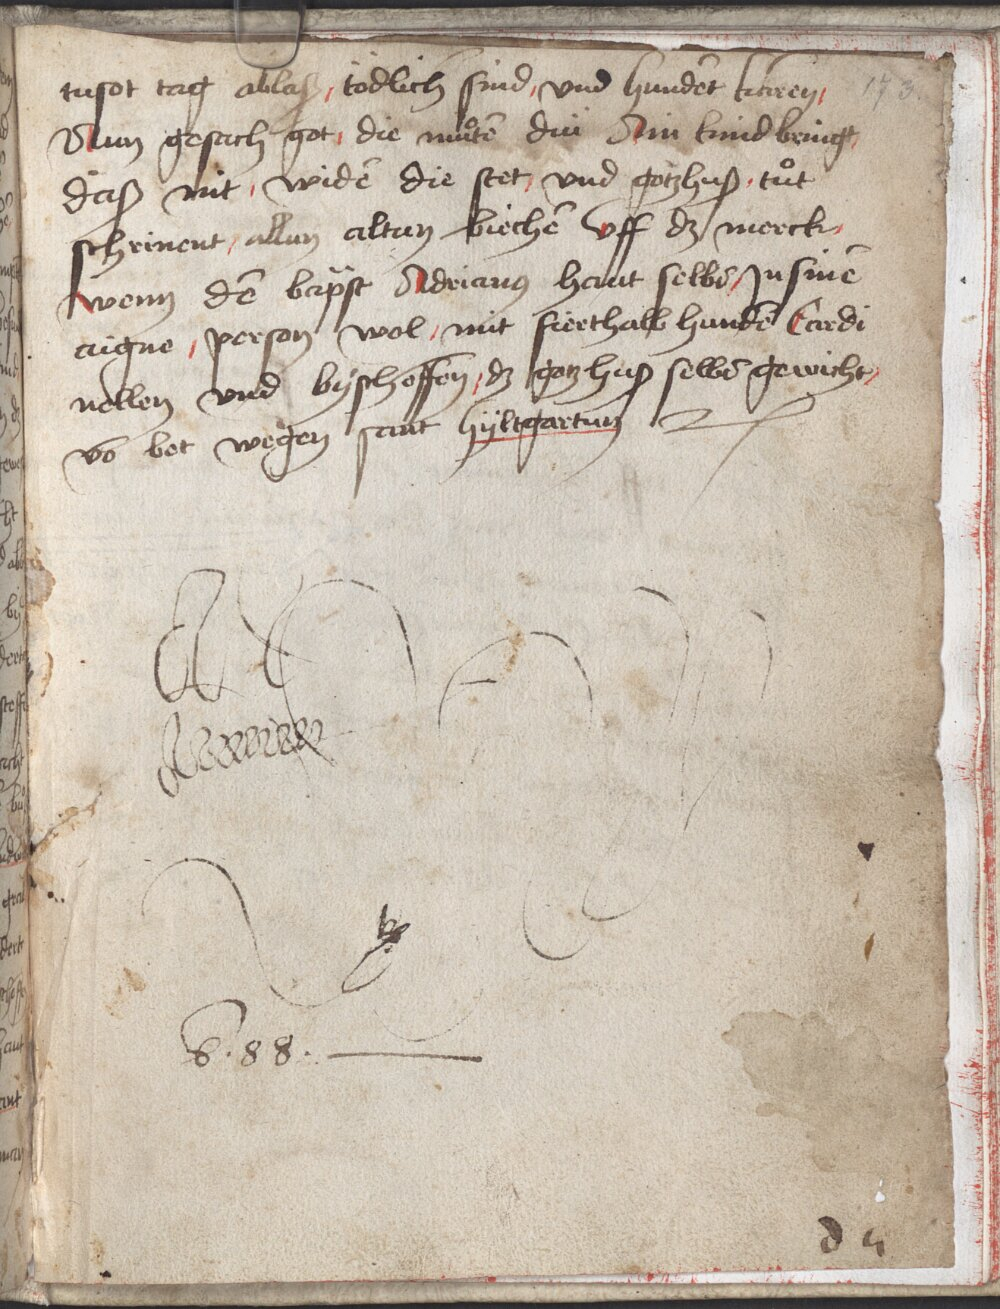 tusot tag ablaß, tödlich sind, und hundet karen,
Nun gesach got, die můtē diu Ain kind bringt,
daß nit, widē die stet, und gotzhuß, tůt
schrinent, allun altun biechē uff dz merck,
wenn dē bäpst Adrianus haut selbē, In sinē
aigne, person wol, mit fierthalb hundē Cardi
nellen und byschoffen, dz gotzhuß selbē gewicht,
vō bet wegen sant hyltgartun
173.
8.88.